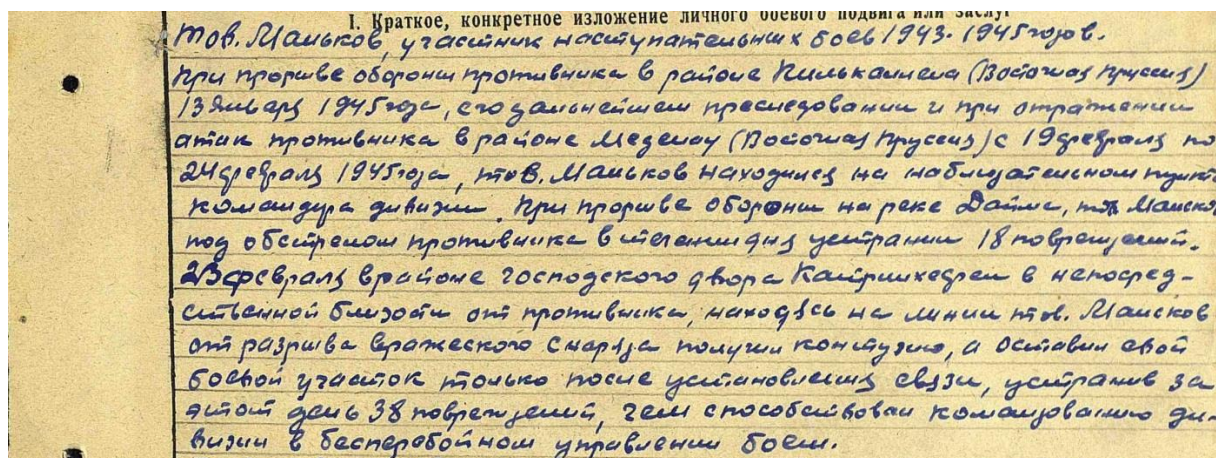 I. Краткое, конкретное изложение личного боевого подвига или заслуг
Тов. Маньков, участник наступательных боев 1943-1945 годов.
При прорыве обороны противника в районе Пилькаллена (Восточная Пруссия)
13 января 1945 года, его дальнейшем преследовании и при отражении
атак противника в районе Меденау (Восточная Пруссия) с 19 февраля по
24 февраля 1945 года, тов. Маньков находился на наблюдательном пункте
командира дивизии. При прорыве обороны на реке Дайме, тов. Маньков
под обстрелом противника в течении дня устранил 18 повреждений.
23 февраля в районе господского двора в непосред-
ственной близости от противника, находясь на линии тов. Маньков
от разрыва вражеского снаряда получил контузию, а оставил свой
боевой участок только после установления связи, устранив за
этот день 38 повреждений, чем способствовал командованию ди-
визии в бесперебойном управлении боем.